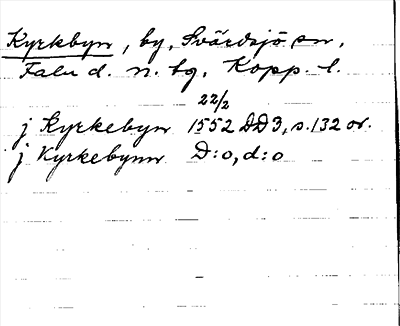 Kyrkbyn, by, Svärdsjö sn,
Falu d. n. tg, Kopp. l.
22/2
j Kyrkebyn 1552 DD3, s. 132 or.
j Kyrkebynn D:o, d:o